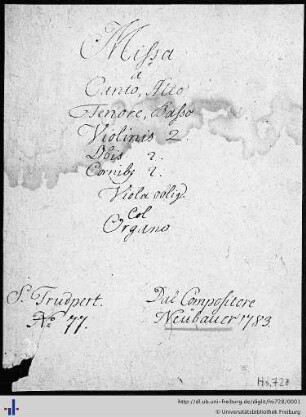 Missa
à
Canto, Alto
Tenore, Basso
Violinis 2.
Obois 2.
Cornibg 2.
Viola oblig.
Col
Organo
S. Trudpert.
No 77.
Dal Compositore
Neubauer 1783.
Hs. 728
http://dl.ub.uni-freiburg.de/diglit/hs728/0001
© Universitätsbibliothek Freiburg